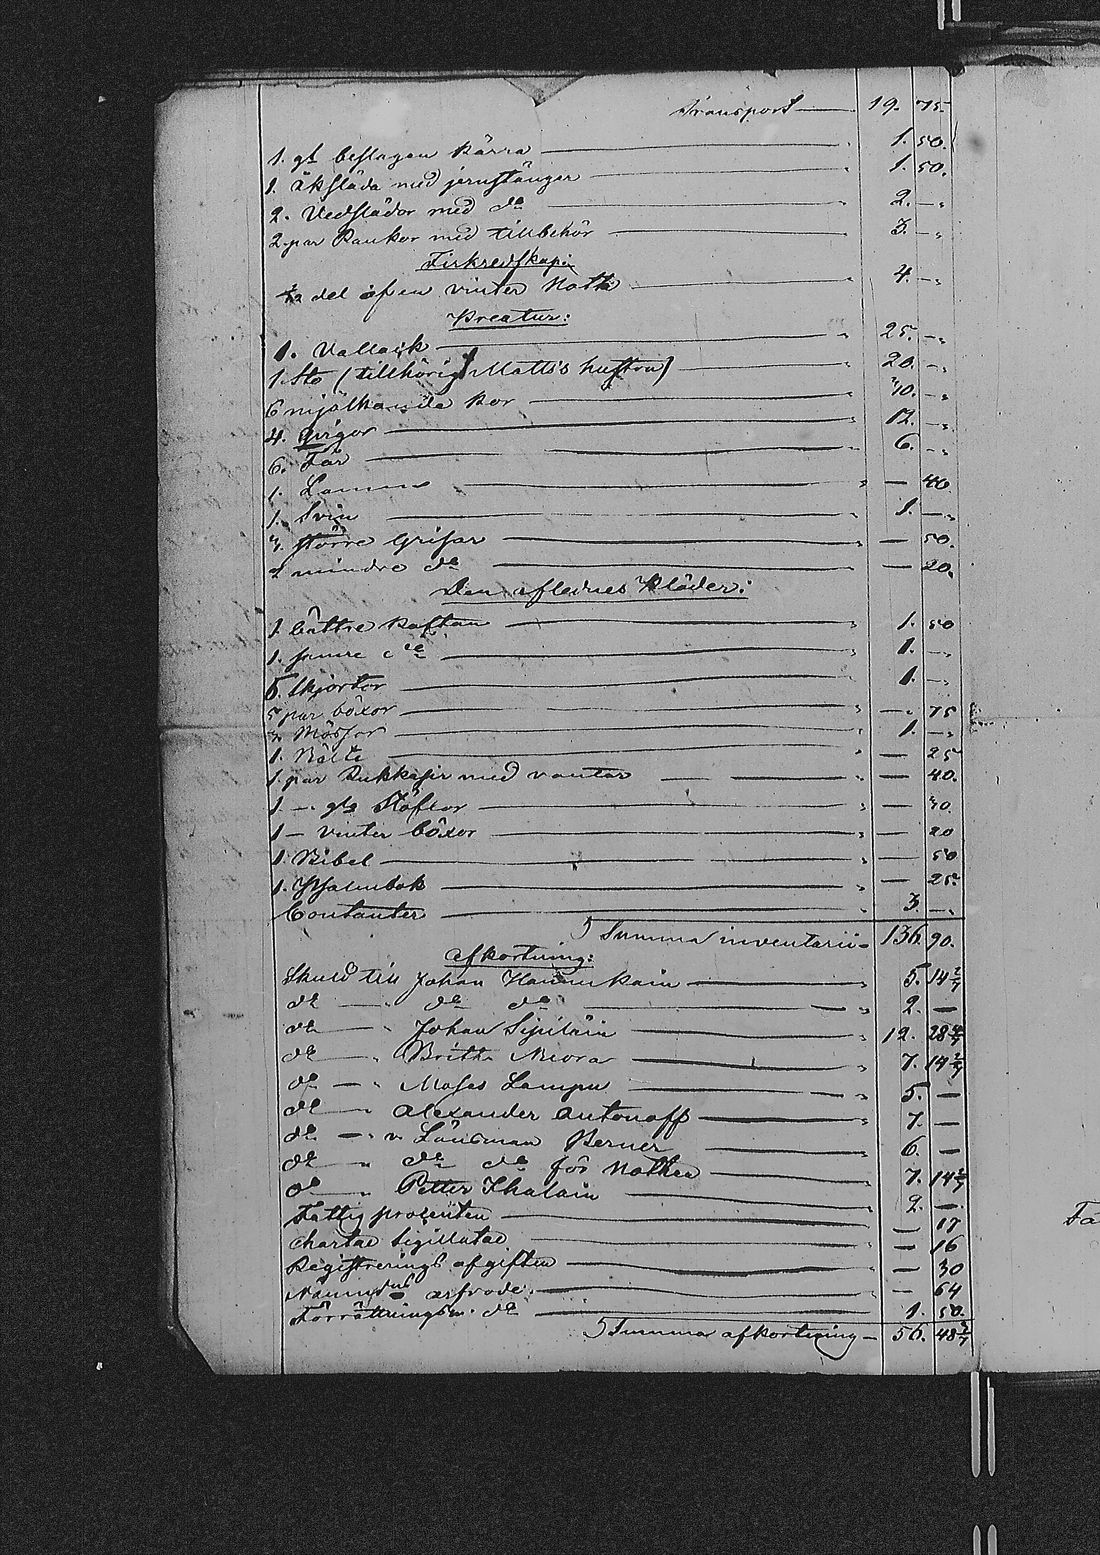 Transport — 19. 75.
1. gl beslagen Kärra — 1. 50.
1. Åksläda med jernstänger — 1. 50.
2. Vedslädor med do — 2. —
2. par Rankor med tillbehör — 3. —
Fiskredskapen
del af en vinter Noth — 4. —
Kreatur:
1. Vallack — 25. —
1. Sto (tillhörigt Matts's hustru) — 20. —
6 mjölkande Kor — 30. —
4. Qvigor — 12. —
6. Får — 6. —
1. Lamm — — 40.
1. Svin — 1. —
3. större Grisar — — 50.
2 mindre do — — 20.
Den aflednes Kläder:
1. bättre Kaftan — 1. 50
1. sämre do — 1. —
5. Skjortor — 1. —
5 par böxor — — 75
3. Mössor — 1. —
1. Bälte — — 25
1. par Rukkaser med vantar — — 40.
1 — gla Stöflor — — 30.
1 — vinter böxor — — 20
1. Bibel — — 50
1. Psalmbok — — 25.
Contanter — 3. —
Summa inventarii — 136. 90.
Afkortning:
Skuld till Johan Hannukain — 5. 14 2/7
do — do do — 2. —
do — Johan Sipiläin — 12. 28 4/7
do — Britha Niora — 7. 14 2/7
do — Moses Lampu — 5. —
do — Alexander Antonoff — 7. —
do — v. Länsman Berner — 6. —
do — do do för Nothen — 7. 14 2/7
do — Petter Ihalain — 2. —
Fattig procenten — — 17
Chartae Sigillatae — — 16
Registrerings afgiften — — 30
Nämndens arfvode — — 64
Förrättningsm. do — 1. 50.
Summa afkortning — 56. 48 3/7